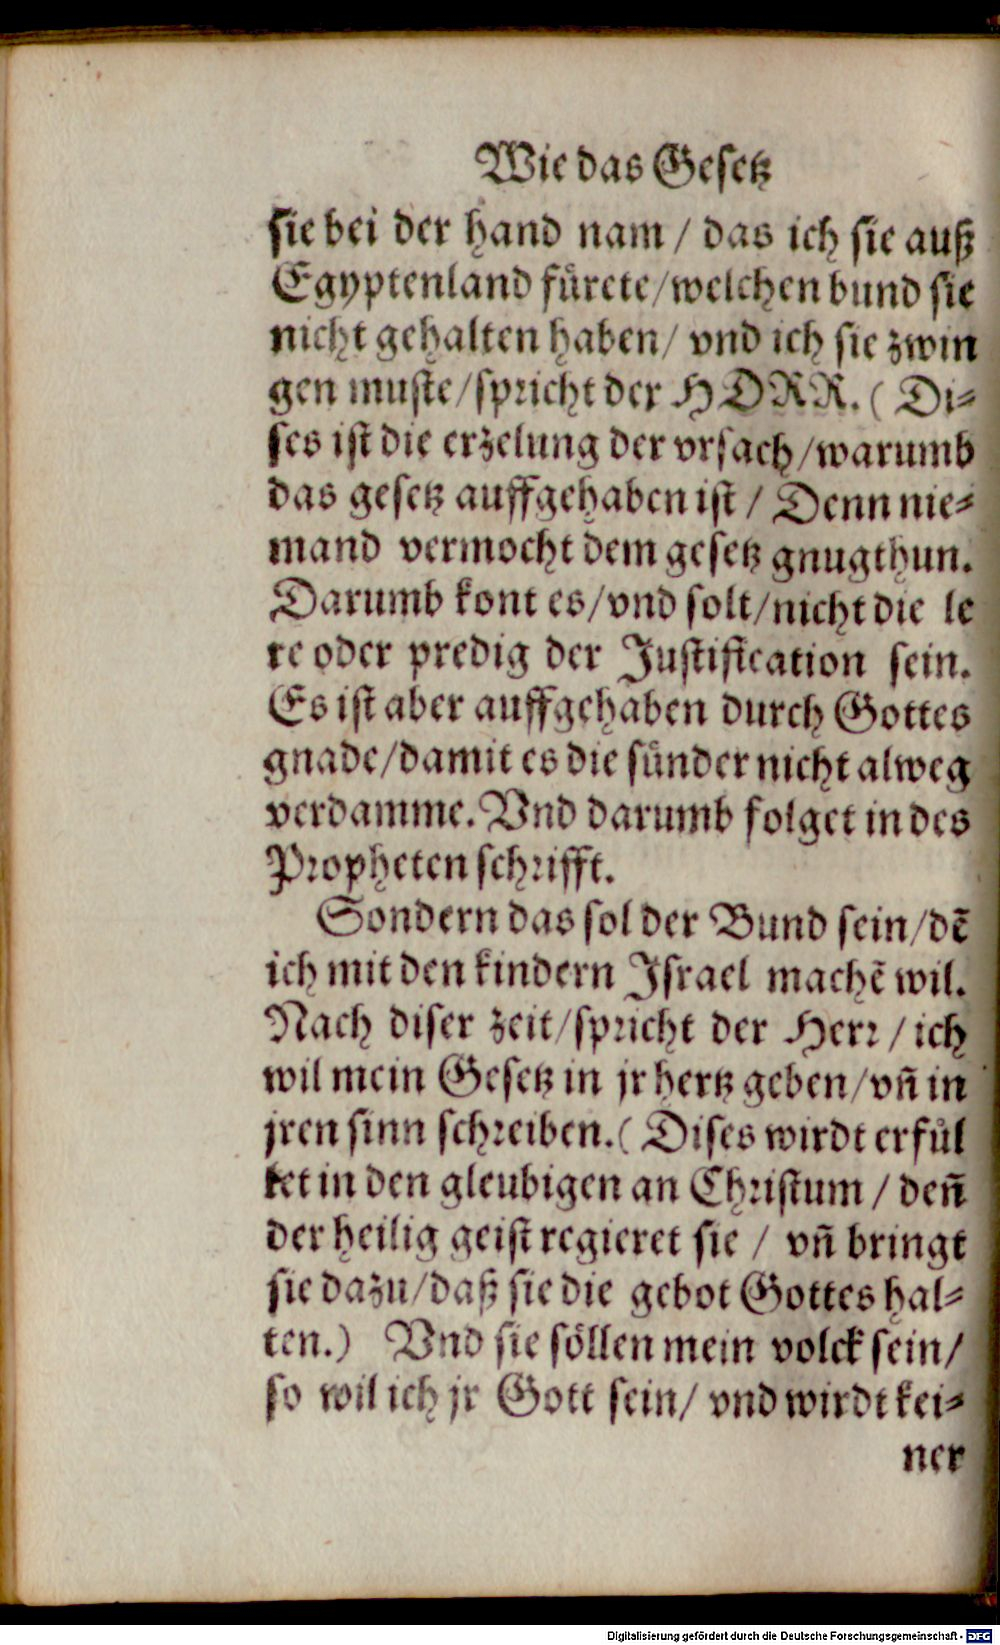 Wie das Gesetz
sie bei der hand nam / das ich sie auß
Egyptenland fuͤrete/welchen bund sie
nicht gehalten haben/ vnd ich sie zwin
gen muste/spricht der HERR. ( Di⸗
ses ist die erzelung der vrsach/warumb
das gesetz auffgehaben ist / Denn nie⸗
mand vermocht dem gesetz gnugthun.
Darumb kont es/vnd solt/nicht die le
re oder predig der Justification sein.
Es ist aber auffgehaben durch Gottes
gnade/damit es die suͤnder nicht alweg
verdamme. Vnd darumb folget in des
Propheten schrifft.
Sondern das sol der Bund sein/dẽ
ich mit den kindern Jsrael machẽ wil.
Nach diser zeit/spricht der Herr / ich
wil mein Gesetz in jr hertz geben/vñ in
jren sinn schreiben.( Dises wirdt erfuͤl
let in den gleubigen an Christum / deñ
der heilig geist regieret sie / vñ bringt
sie dazu/daß sie die gebot Gottes hal⸗
ten.) Vnd sie soͤllen mein volck sein/
so wil ich jr Gott sein/ vnd wirdt kei⸗
ner
Digitalisierung gefördert durch die Deutsche Forschungsgemeinschaft - DFG